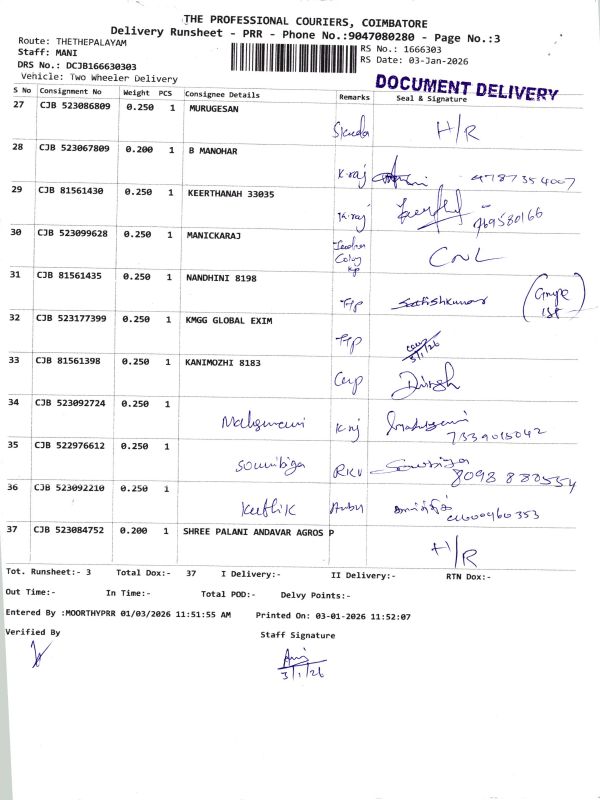 THE PROFESSIONAL COURIERS, COIMBATORE
Delivery Runsheet - PRR - Phone No.:9047080280 - Page No.:3
Route: THETHEPALAYAM
RS No.: 1666303
Staff: MANI
RS Date: 03-Jan-2026
DRS No.: DCJB166630303
Vehicle: Two Wheeler Delivery
DOCUMENT DELIVERY
S No Consignment No Weight PCS Consignee Details Remarks Seal & Signature
27 CJB 523086809 0.250 1 MURUGESAN
H/R
28 CJB 523067809 0.200 1 B MANOHAR
K.raj 9787354007
29 CJB 81561430 0.250 1 KEERTHANAH 33035
K.raj
30 CJB 523099628 0.250 1 MANICKARAJ
Colony CNL
31 CJB 81561435 0.250 1 NANDHINI 8198
TTP Sathishkumar
32 CJB 523177399 0.250 1 KMGG GLOBAL EXIM
TTP 3/1/26
33 CJB 81561398 0.250 1 KANIMOZHI 8183
34 CJB 523092724 0.250 1
K.raj
35 CJB 522976612 0.250 1
RKV 8098 880554
36 CJB 523092210 0.250 1
37 CJB 523084752 0.200 1 SHREE PALANI ANDAVAR AGROS P
H/R
Tot. Runsheet:- 3 Total Dox:- 37 I Delivery:- II Delivery:- RTN Dox:-
Out Time:- In Time:- Total POD:- Delvy Points:-
Entered By :MOORTHYPRR 01/03/2026 11:51:55 AM Printed On: 03-01-2026 11:52:07
Verified By Staff Signature
3/1/26